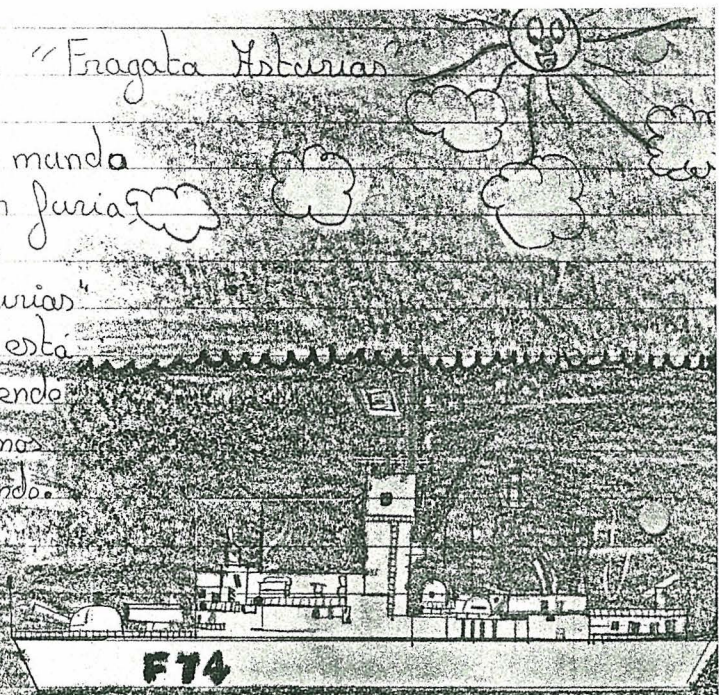 "Fragata Asturias"
mundo
furia,
urias"
está
ende
mos
ndo.
F74